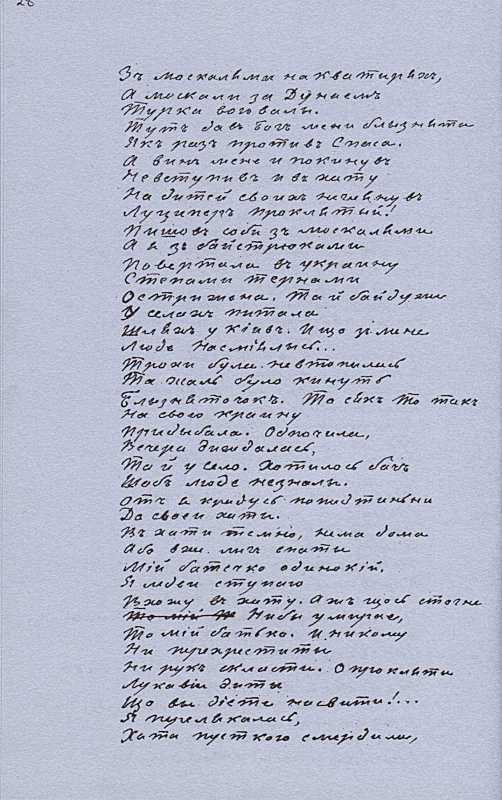 28
Зъ москалями на кватиряхъ,
А москали за Дунаемъ
Турка воювалы.
Тутъ давъ богъ мени блызнята
Якъ разъ противъ Спаса.
А винъ мене и покинувъ
Невступивъ и въ хату
На дитей своихъ неглянувъ
Луциперъ проклятый!
Пишовъ соби зъ москалями
А я зъ байстрюками
Повертала въ украину
Степами тернами
Острижена. Та й байдуже
У селахъ питала
Шляхъ у кіивъ. И що зъ мене
Люде насміялысь...
Трохи була. невтопилась
Та жаль було кинуть
Близняточокъ. То сякъ то такъ
На свою краину
Прибыбала. Одпочила,
Вечера дождалась,
Та й у село. Хотилось бачъ
Щобъ люде незналы.
Отъ я крадусь попидтинню
До своеи хаты.
Въ хати темно, нема дома
Або вже лигъ спаты
Мій батечко одинокій.
Я ледви ступаю
Вхожу въ хату. Ажъ щось стогне
Нибы умирае,
То мій батько. И никому
Ни перехреститы
Ни рукъ скласти. О прокляти
Лукавіи диты
Що вы діете на свити!...
Я перелякалась,
Хата пусткою смерділа,